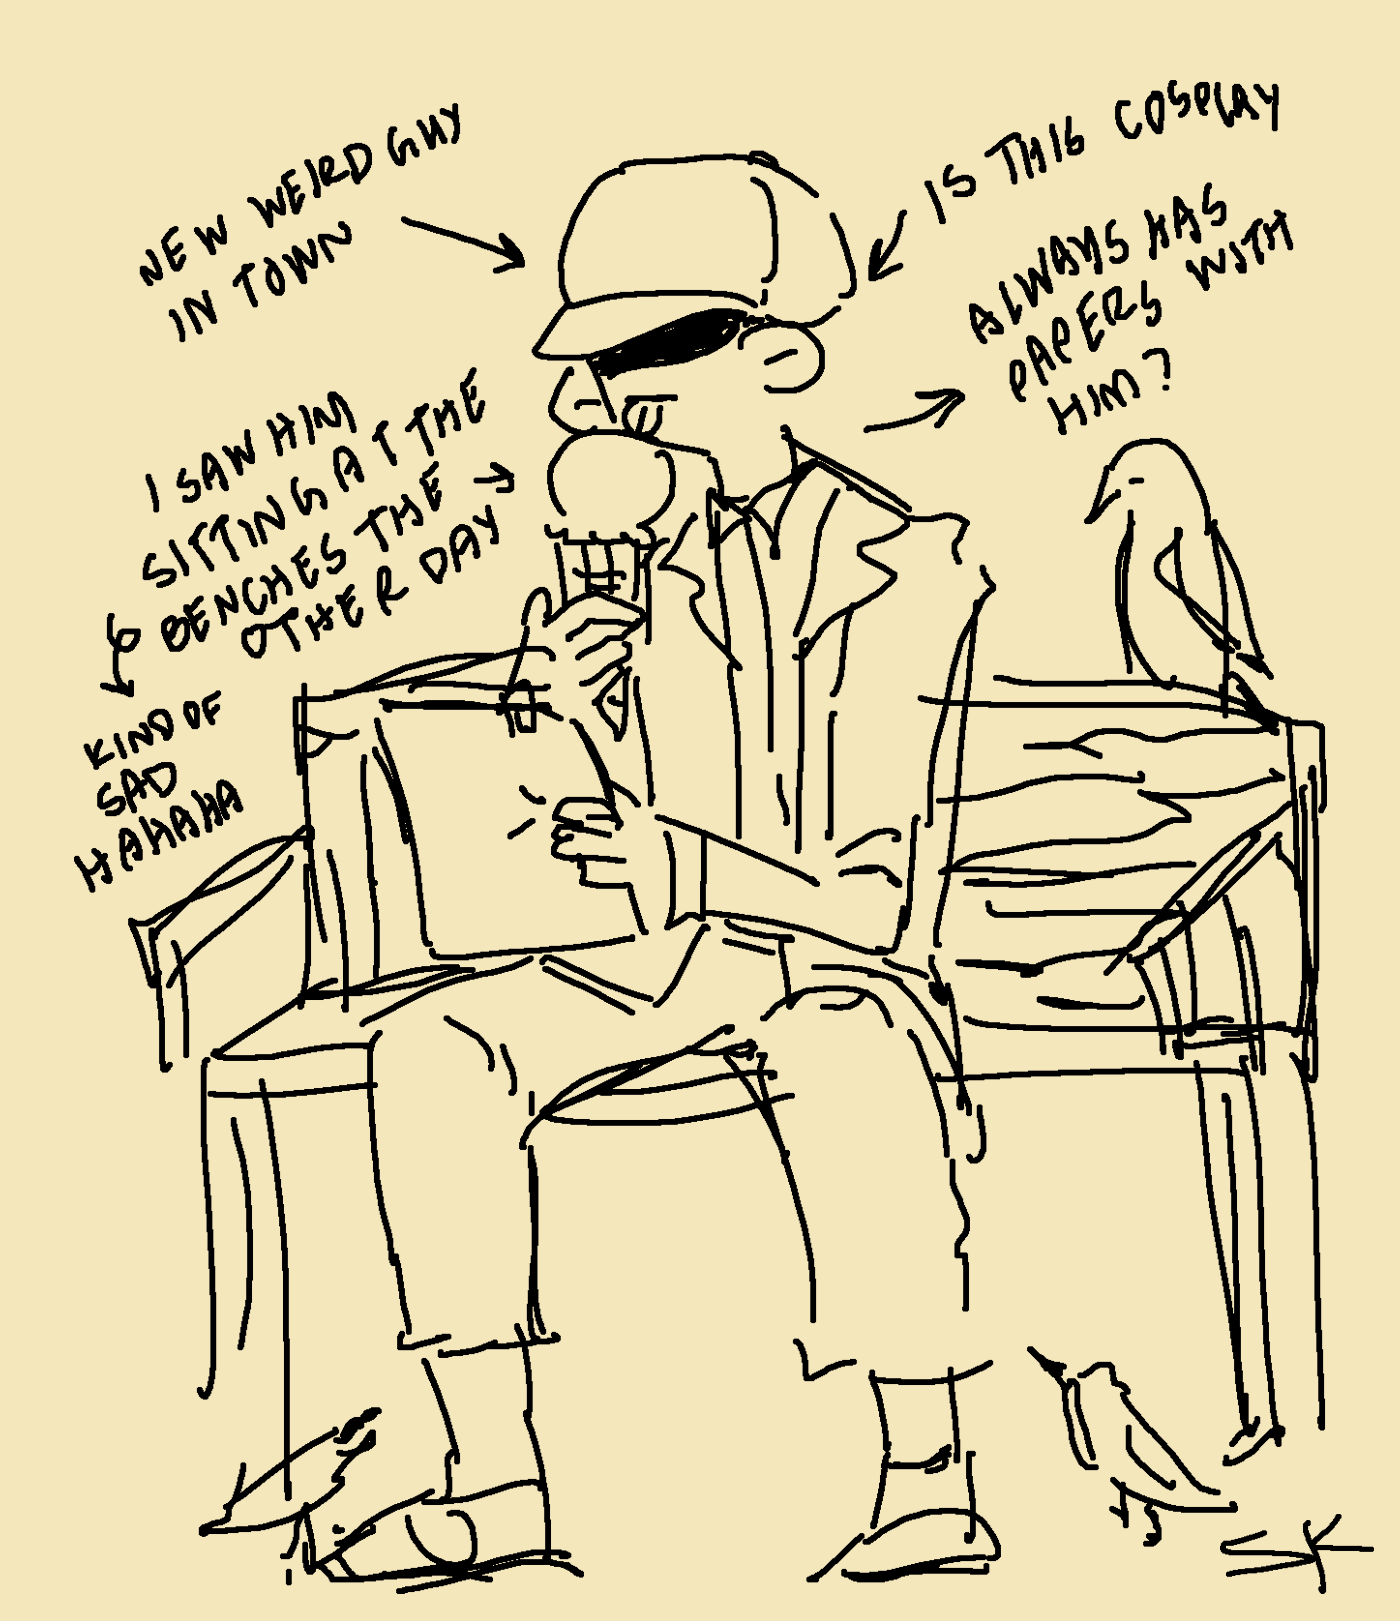 NEW WEIRD GUY
IN TOWN
IS THIS COSPLAY
ALWAYS HAS
PAPERS WITH
HIM?
I SAW HIM
SITTING AT THE
BENCHES THE
OTHER DAY
KIND OF
SAD
HAHAHA
SK